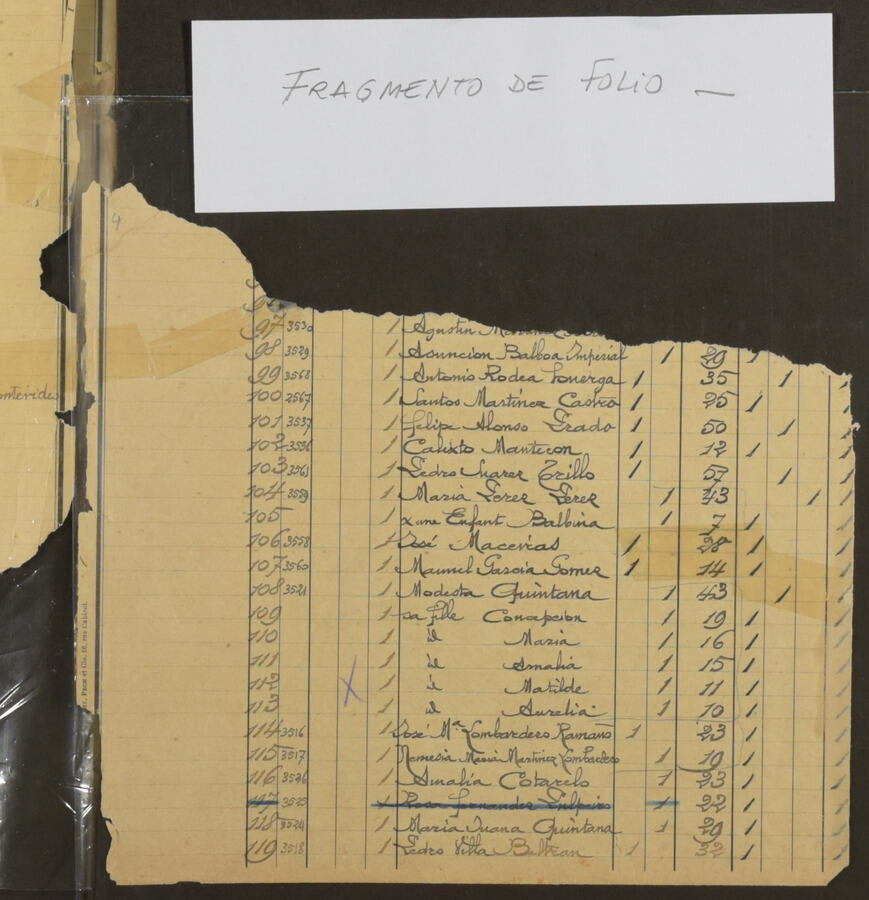 FRAGMENTO DE FOLIO —
4
97 3530 1 Agustin
98 3529 1 Asuncion Balboa Imperial 1 29 1
99 3568 1 Antonio Rodea 1 35 1 1
100 2567 1 Santos Martinez Castro 1 25 1 1
101 3537 1 Felipe Alonso Prado 1 50 1 1
102 3536 1 Calixto Mantecon 1 12 1 1
103 1 Pedro Suarez Trillo 1 57 1 1
104 3539 1 Maria Perez Perez 1 43 1 1
105 1 x une Enfant Balbina 1 7 1 1
106 3558 1 José Macenas 1 28 1 1
107 3560 1 Manuel Garcia Gomez 1 14 1 1
108 3521 1 Modesta Quintana 1 43 1 1
109 1 sa fille Concepcion 1 19 1 1
110 1 id Maria 1 16 1 1
111 1 id Amalia 1 15 1 1
112 X 1 id Matilde 1 11 1 1
113 1 id Aurelia 1 10 1 1
114 3516 1 José Mª Lombardero Ramano 1 23 1 1
115 3517 1 Nemesia Maria Martinez Lombardero 1 19 1 1
116 3526 1 Amalia Cotarelo 1 23 1 1
117 3525 1 Rosa Fernandez Sulpeiro 1 22 1 1
118 3524 1 Maria Juana Quintana 1 29 1 1
119 3518 1 Pedro Villa Beltran 1 32 1 1